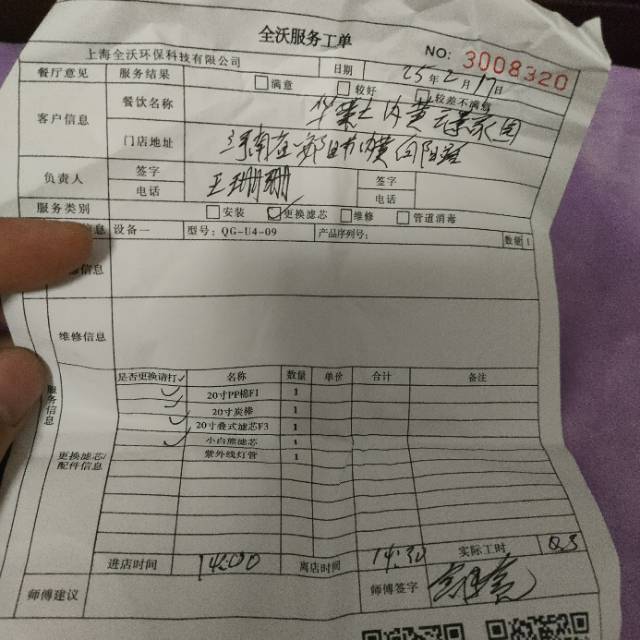 全沃服务工单
上海全沃环保科技有限公司 日期 25年2月17日 NO: 3008320
餐厅意见 服务结果 满意 较好 较差不满意
客户信息 餐饮名称 华莱士内黄
门店地址 河南
负责人 签字 王珊珊 签字
电话 电话
服务类别 安装 更换滤芯 维修 管道消毒
设备一 型号: QG-U4-09 产品序列号: 数量 1
维修信息
服务信息
是否更换请打✓ 名称 数量 单价 合计 备注
✓ 20寸PP棉F1 1
✓ 20寸炭棒 1
✓ 20寸叠式滤芯F3 1
✓ 小白熊滤芯 1
紫外线灯管 1
更换滤芯/
配件信息
进店时间 14:00 离店时间 14:30 实际工时 0.5
师傅建议 师傅签字